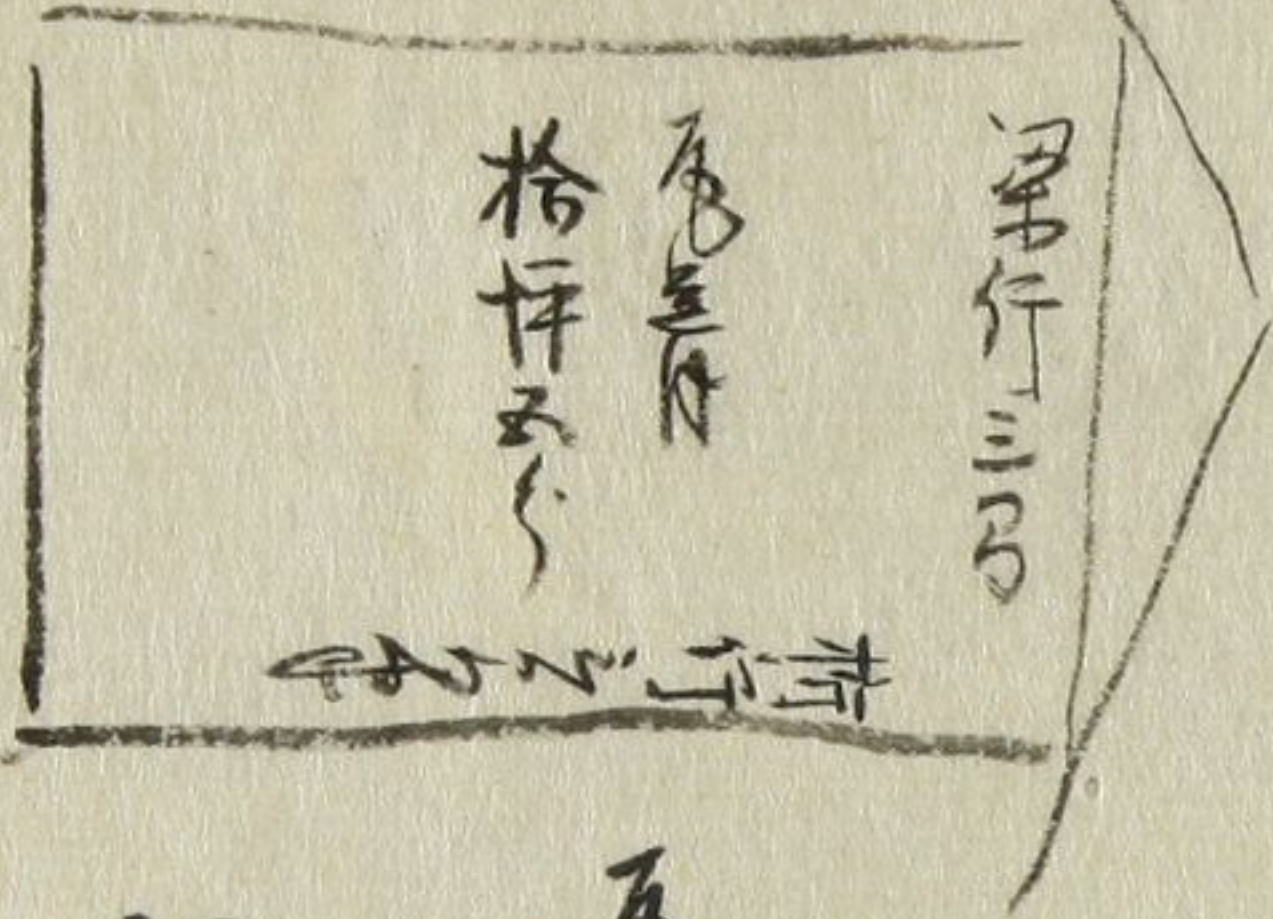 梁行三間
瓦葺
拾坪五分
桁行三間半
瓦